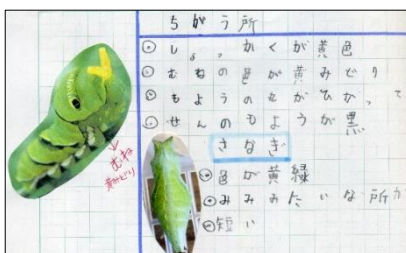 ちがう所
しょっかくが黄色
むねの色が黄みどり
もようの丸がひかって
せんのもようが黒
さなぎ
色が黄緑
みみみたいな所が
短い
むね
黄みどり